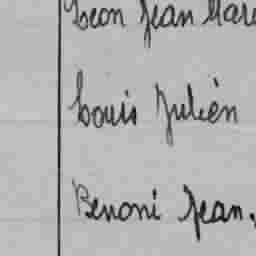 Léon Jean Mar
Louis Julien
Benoni Jean.